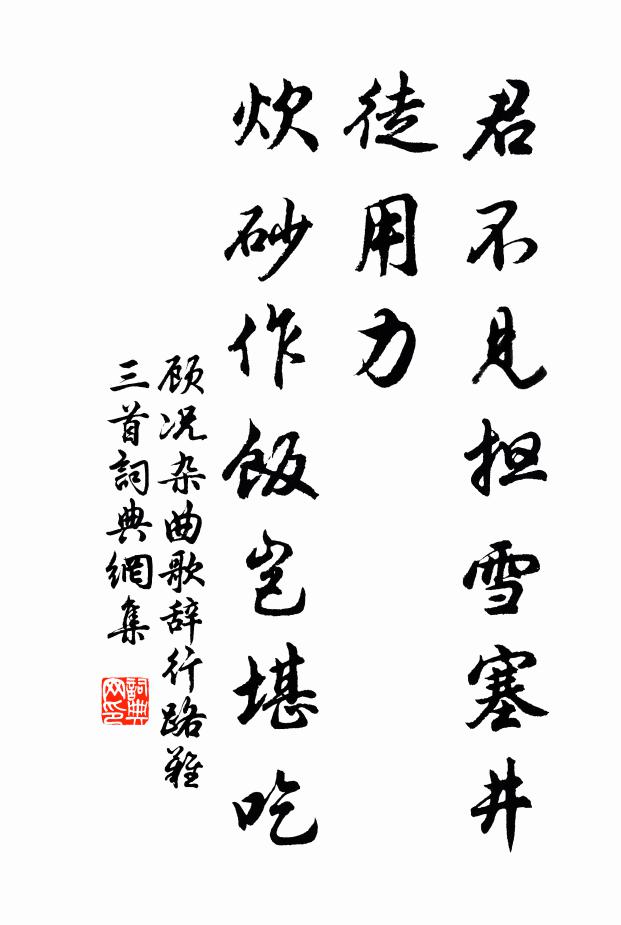 君不见担雪塞井
徒用力
炊砂作飯岂堪吃
顾况杂曲歌辞行路難
三首詞典網集
詞典网印